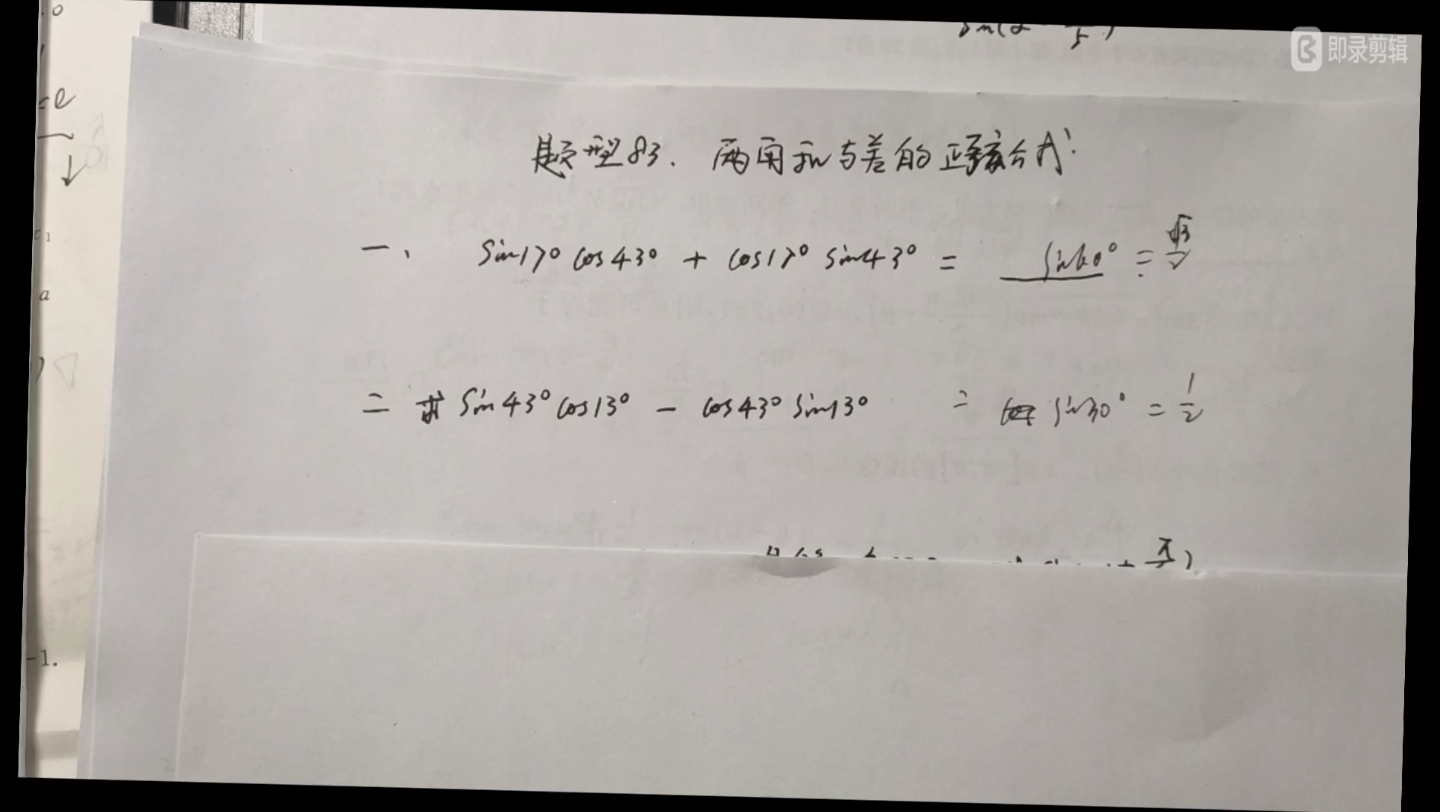 即录剪辑
题型83. 两角和与差的正弦公式:
一、 sin17° cos43° + cos17° sin43° = sin60° = √3/2
二 求 sin43° cos13° - cos43° sin13° = sin30° = 1/2
-1.